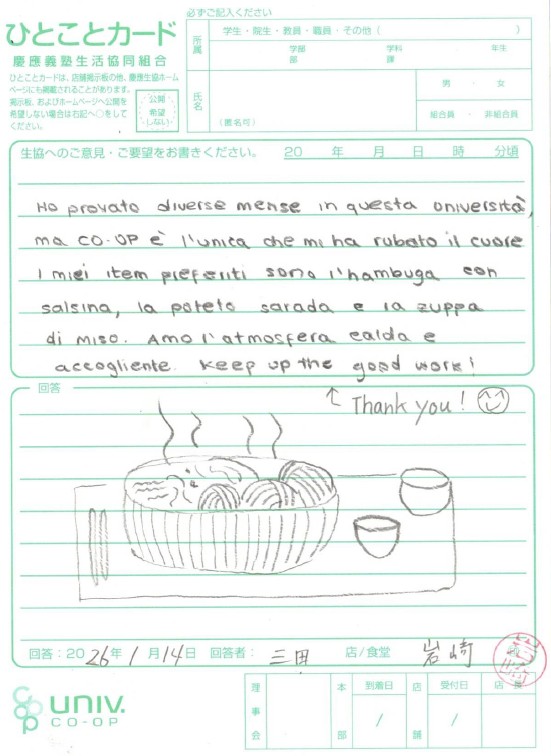 ひとことカード
慶應義塾生活協同組合
ひとことカードは、店舗掲示板の他、慶應生協ホーム
ページにも掲載されることがあります。
掲示板、およびホームページへ公開を
希望しない場合は右記へ○をして
ください。
公開
希望
しない
必ずご記入ください
所属
学生・院生・教員・職員・その他（　　　）
学部　学科　年生
部　課
氏名
（匿名可）
男・女
組合員・非組合員
生協へのご意見・ご要望をお書きください。　20　年　月　日　時　分頃
Ho provato diverse mense in questa università,
ma CO-OP è l'unica che mi ha rubato il cuore
I miei item preferiti sono l'hambuga con
salsina, la poteto sarada e la zuppa
di miso. Amo l'atmosfera calda e
accogliente. Keep up the good work!
回答
↑ Thank you!
回答：2026年1月14日　回答者：三田　店/食堂　岩崎
UNIV.
CO-OP
理事会
本部
到着日
/
店舗
受付日
/
店長